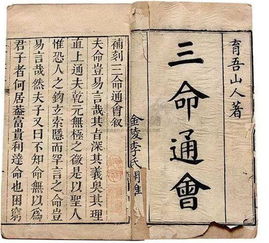 育吾山人著
三命通會
金陵李氏
補刻三命通會敘
夫命豈易言哉其旨深其義奧其理
直上通夫乾元無極之後是以聖人
惟恐人之鉤玄索隱而罕言之命豈
易言哉然夫子又曰不知命無以爲
君子者何居蓋富貴利達命也困窮